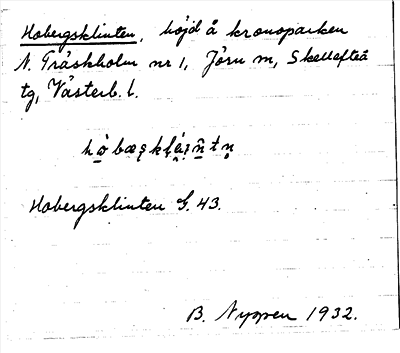 Hobergsklinten, höjd å kronoparken
N. Gråskholm nr 1, Jörn sn, Skellefteå
tg, Västerb. l.
Hobergsklinten G. 43.
B. Nygren 1932.